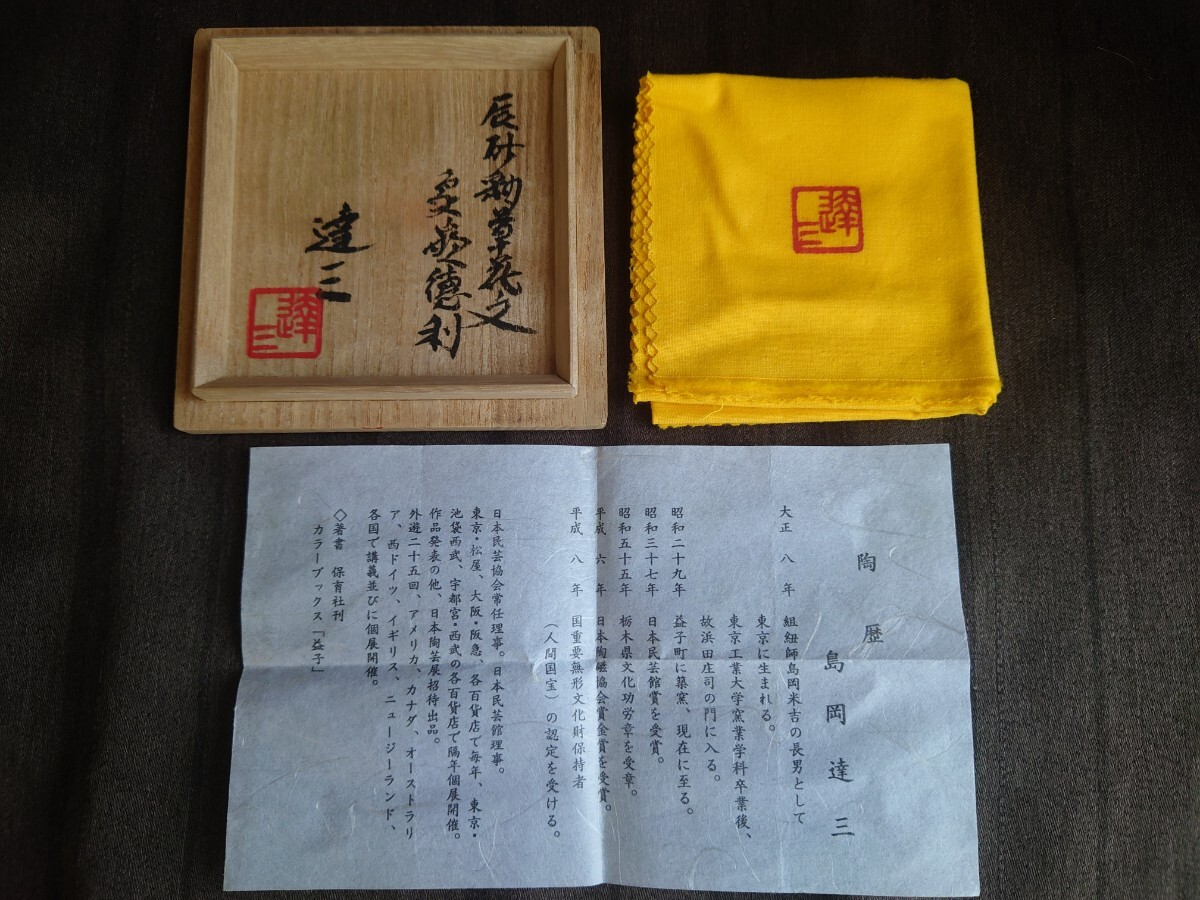 辰砂釉草花文
達三
達三
達三
陶歴
島岡達三
大正八年 組紐師島岡米吉の長男として
東京に生まれる。
東京工業大学窯業学科卒業後、
故浜田庄司の門に入る。
昭和二十九年 益子町に築窯、現在に至る。
昭和三十七年 日本民芸館賞を受賞。
昭和五十五年 栃木県文化功労章を受章。
平成六年 日本陶磁協会賞金賞を受賞。
平成八年 国重要無形文化財保持者
(人間国宝)の認定を受ける。
日本民芸協会常任理事。日本民芸館理事。
東京・松屋、大阪・阪急、各百貨店で毎年、東京・
池袋西武、宇都宮・西武の各百貨店で隔年個展開催。
作品発表の他、日本陶芸展招待出品。
外遊二十五回、アメリカ、カナダ、オーストラリ
ア、西ドイツ、イギリス、ニュージーランド、
各国で講義並びに個展開催。
◇著書 保育社刊
カラーブックス「益子」